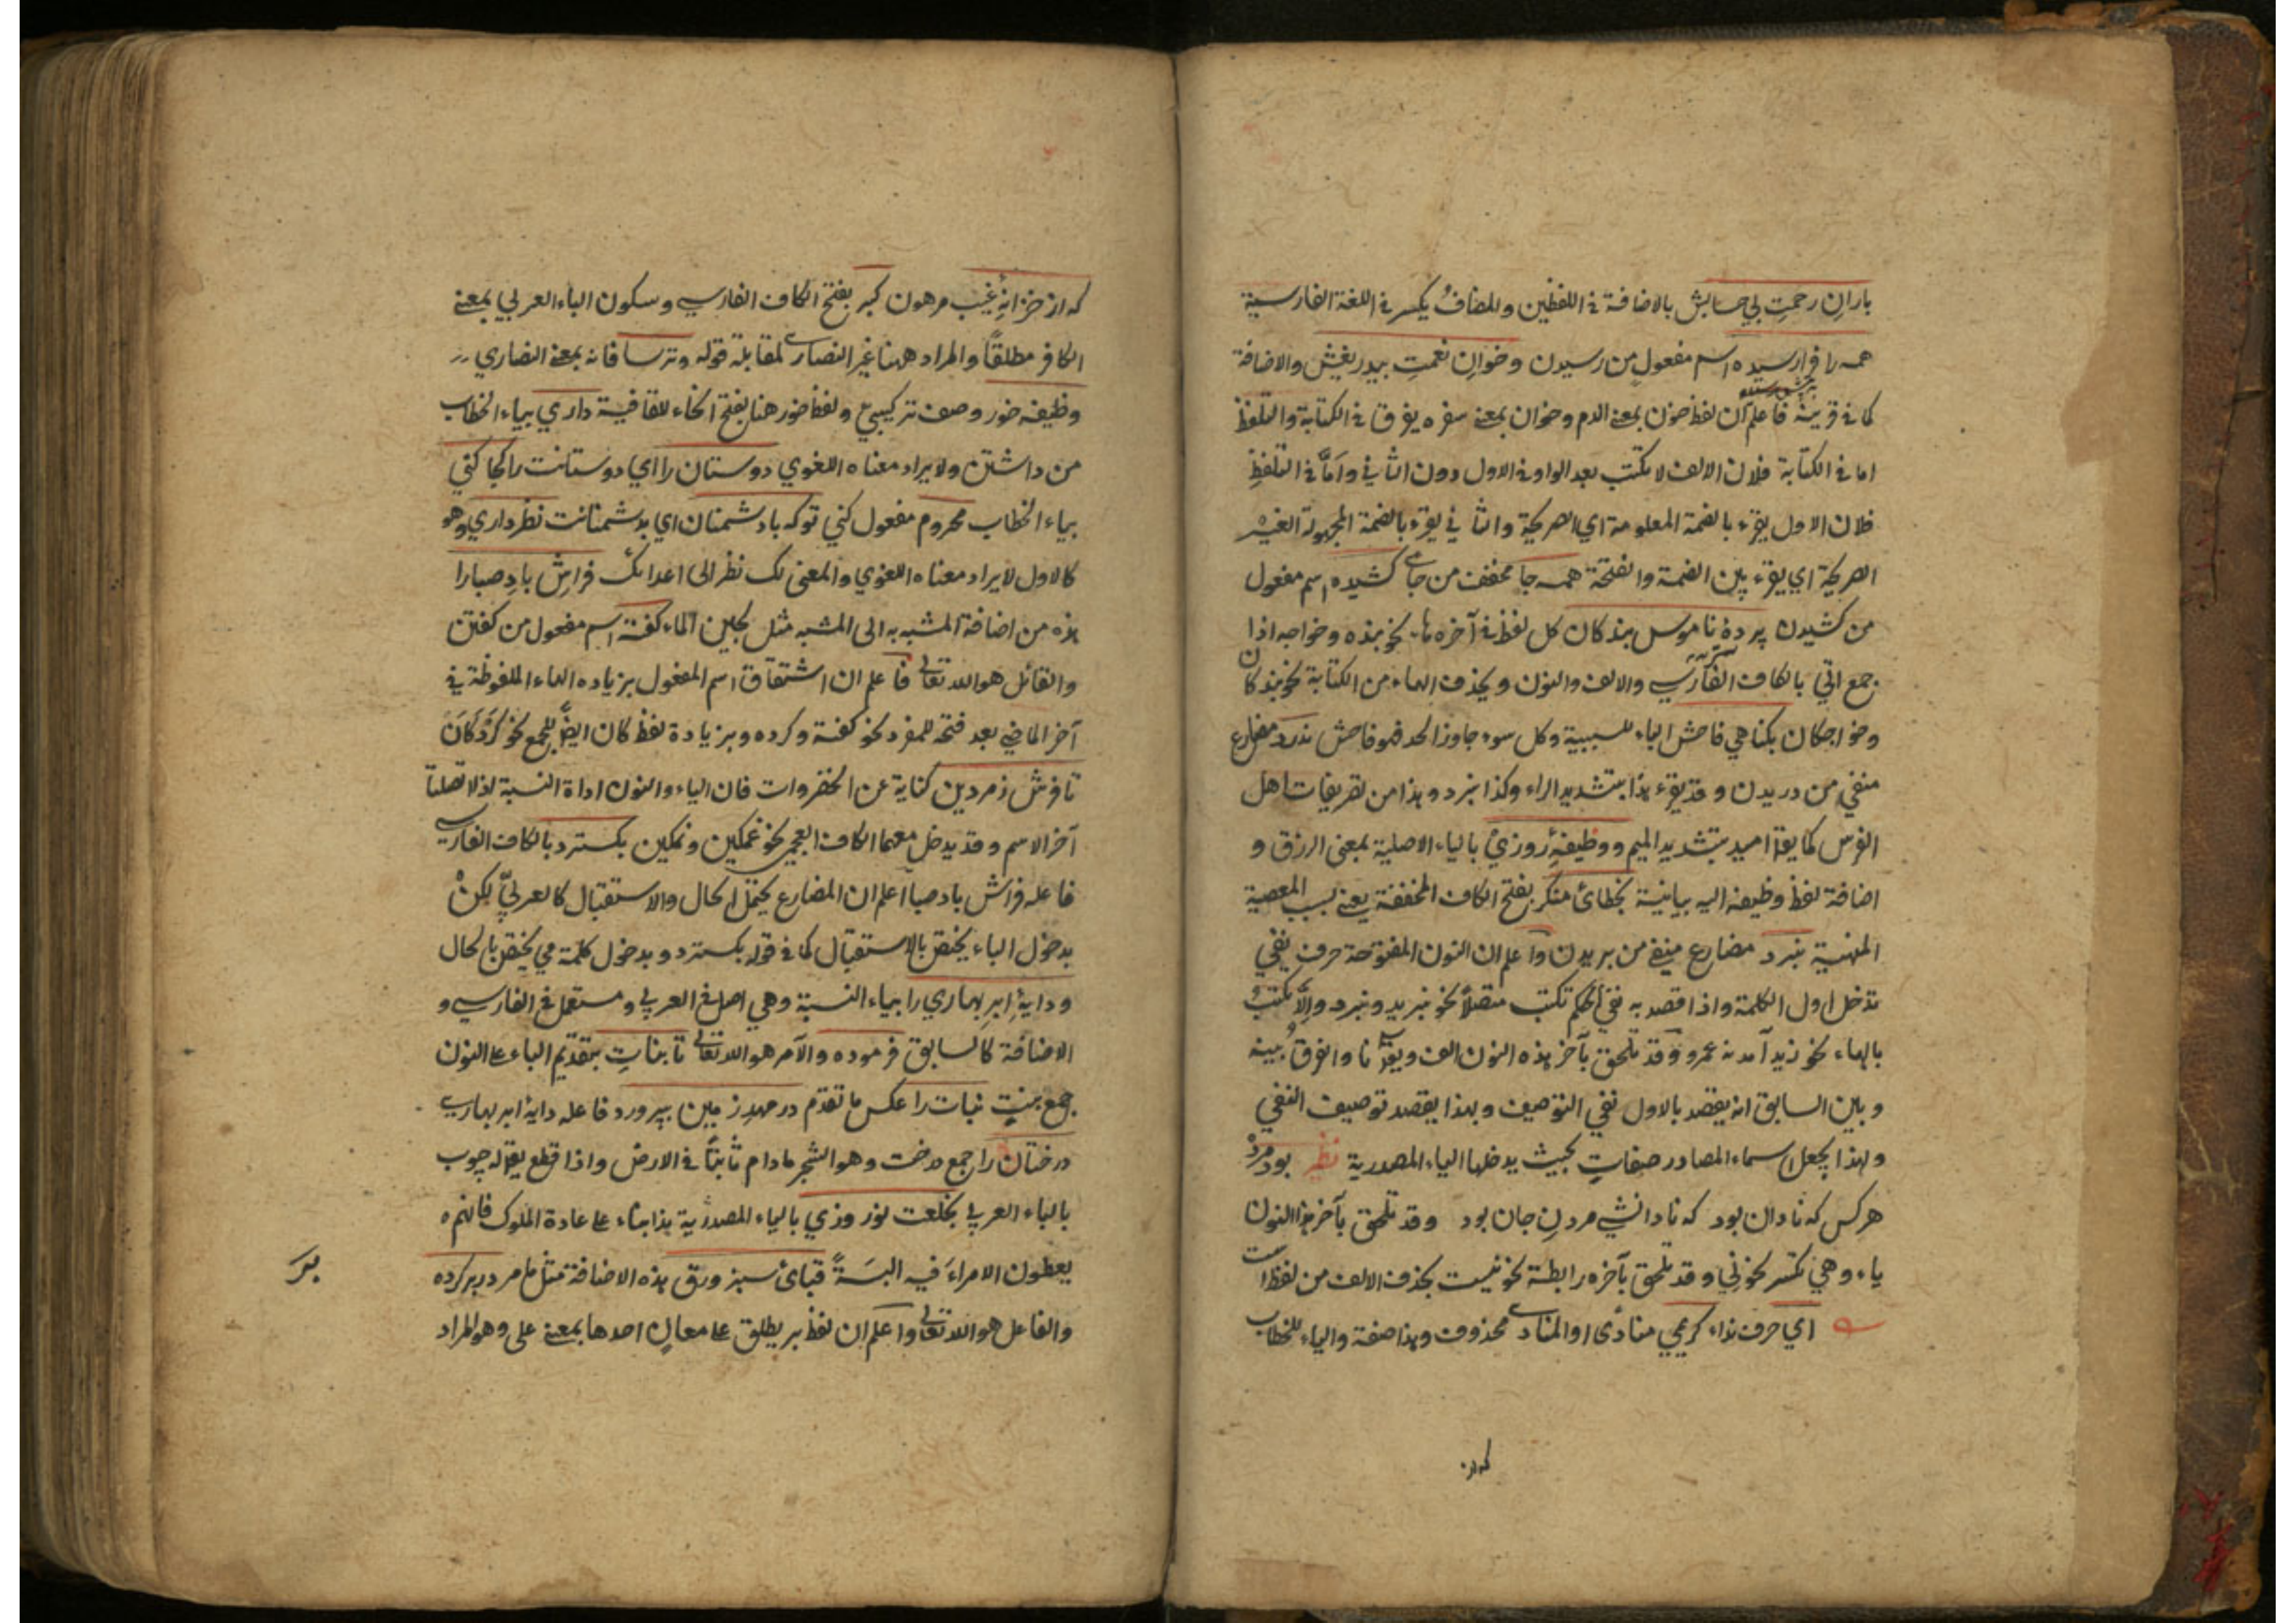 باران رحمت بي حسابش بالاضافة في اللفظين والمضاف يكسر في اللغة الفارسية
همه را فرا رسيده اسم مفعول من رسيدن وخوان نعمت بيدريغش والاضافة
كما في قرينة فاعلم ان لفظ خون بمعنى الدم وخوان بمعنى سفره يفرق في الكتابة والتلفظ
اما في الكتابة فلان الالف لا يكتب بعد الواو في الاول دون الثاني وامّا في التلفظ
فلان الاول يقرء بالضمة المعلومة اي الصريحة والثاني يقرء بالضمة المجهولة الغير
الصريحة اي يقرء بين الضمة والفتحة همه جا مخفف من جاي كشيده اسم مفعول
من كشيدن پردۀ ناموس بندكان كل لفظ في آخره ها نحو بنده وخواجه اذا
جمع اتي بالكاف الفارسي والالف والنون ويحذف الهاء من الكتابة نحو بندكان
وخواجكان بكناهي فاحش الباء للسببية وكل سوء جاوز الحد فهو فاحش ندرد مضارع
منفي من دريدن وقد يقرء هذا بتشديد الراء وكذا نبرد وهذا من تصريفات اهل
الفرس كما يقرأ اميد بتشديد الميم ووظيفۀ روزئ بالياء الاصلية بمعنى الرزق و
اضافة لفظ وظيفه اليه بيانية بخطائ منكر بفتح الكاف المخففة يعني بسبب المعصية
المنهية نبرد مضارع منفي من بريدن واعلم ان النون المفتوحة حرف نفي
تدخل اول الكلمة واذا قصد به نفي الحكم تكتب متصلاً نحو نبريد ونبرد والّا تكتب
بالهاء نحو زيد آمد نه عمرو وقد تلحق بآخر هذه النون الف ويقال نا والفرق بينه
وبين السابق انه يقصد بالاول نفي التوصيف وبهذا يقصد توصيف النفي
ولهذا يجعل اسماء المصادر صفات بحيث يدخلها الياء المصدرية نظم بود مرده
هركس كه نادان بود كه نادانشي مردن جان بود وقد تلحق بآخر هذا النون
ياء وهي تكسر نحو ني وقد تلحق بآخره رابطة نحو نيست بحذف الالف من لفظ است
اي حرف نداء كريمي منادى او المنادى محذوف وهذا صفة والياء للخطاب
كه از
كه از خزانۀ غيب مرهون كبر بفتح الكاف الفارسي وسكون الباء العربي بمعنى
الكافر مطلقاً والمراد ههنا غير النصارى لمقابلة قوله وترسا فانه بمعنى النصاري
وظيفه خور وصف تركيبي ولفظ خور هنا بفتح الخاء للقافية داري بياء الخطاب
من داشتن ولا يراد معناه اللغوي دوستان را اي دوستانت را كجا كني
بياء الخطاب محروم مفعول كني توكه با دشمنان اي بدشمنانت نظر داري وهو
كالاول لا يراد معناه اللغوي والمعنى لك نظر الى اعدائك فراش باد صبارا
هذه من اضافة المشبه به الى المشبه مثل لجين الماء كفته اسم مفعول من كفتن
والقائل هو الله تعالى فاعلم ان اشتقاق اسم المفعول بزياده الهاء الملفوظة في
آخر الماضي بعد فتحه للمفرد نحو كفته وكرده وبزيادة لفظ كان ايضاً للجمع نحو كردكان
تا فرش زمردين كناية عن الخضروات فان الياء والنون اداة النسبة اذا اتصلتا
آخر الاسم وقد يدخل معهما الكاف العجمي نحو غمكين ونمكين بكسترد بالكاف الفارسي
فاعله فراش باد صبا اعلم ان المضارع يحتمل الحال والاستقبال كالعربيّ لكن
بدخول الباء يختص بالاستقبال كما في قوله بكسترد وبدخول كلمة مي يختص بالحال
ودايۀ ابر بهاري را بياء النسبة وهي اصل في العربي ومستعمل في الفارسي و
الاضافة كالسابق فرموده والآمر هو الله تعالى تا بنات بتقديم الباء على النون
جمع بنت نبات را عكس ما تقدم در مهد زمين بپرورد فاعله دايۀ ابر بهاري
درختان را جمع درخت وهو الشجر مادام ثابتاً في الارض واذا قطع يقال له چوب
بالباء العربي بخلعت نوروزي بالياء المصدرية هذا بناء على عادة الملوك فانهم
يعطون الامراء فيه البسةً قبائ سبز ورق هذه الاضافة مثل ما مر در بر كرده
والفاعل هو الله تعالى واعلم ان لفظ بر يطلق على معان احدها بمعنى على وهو المراد
بر